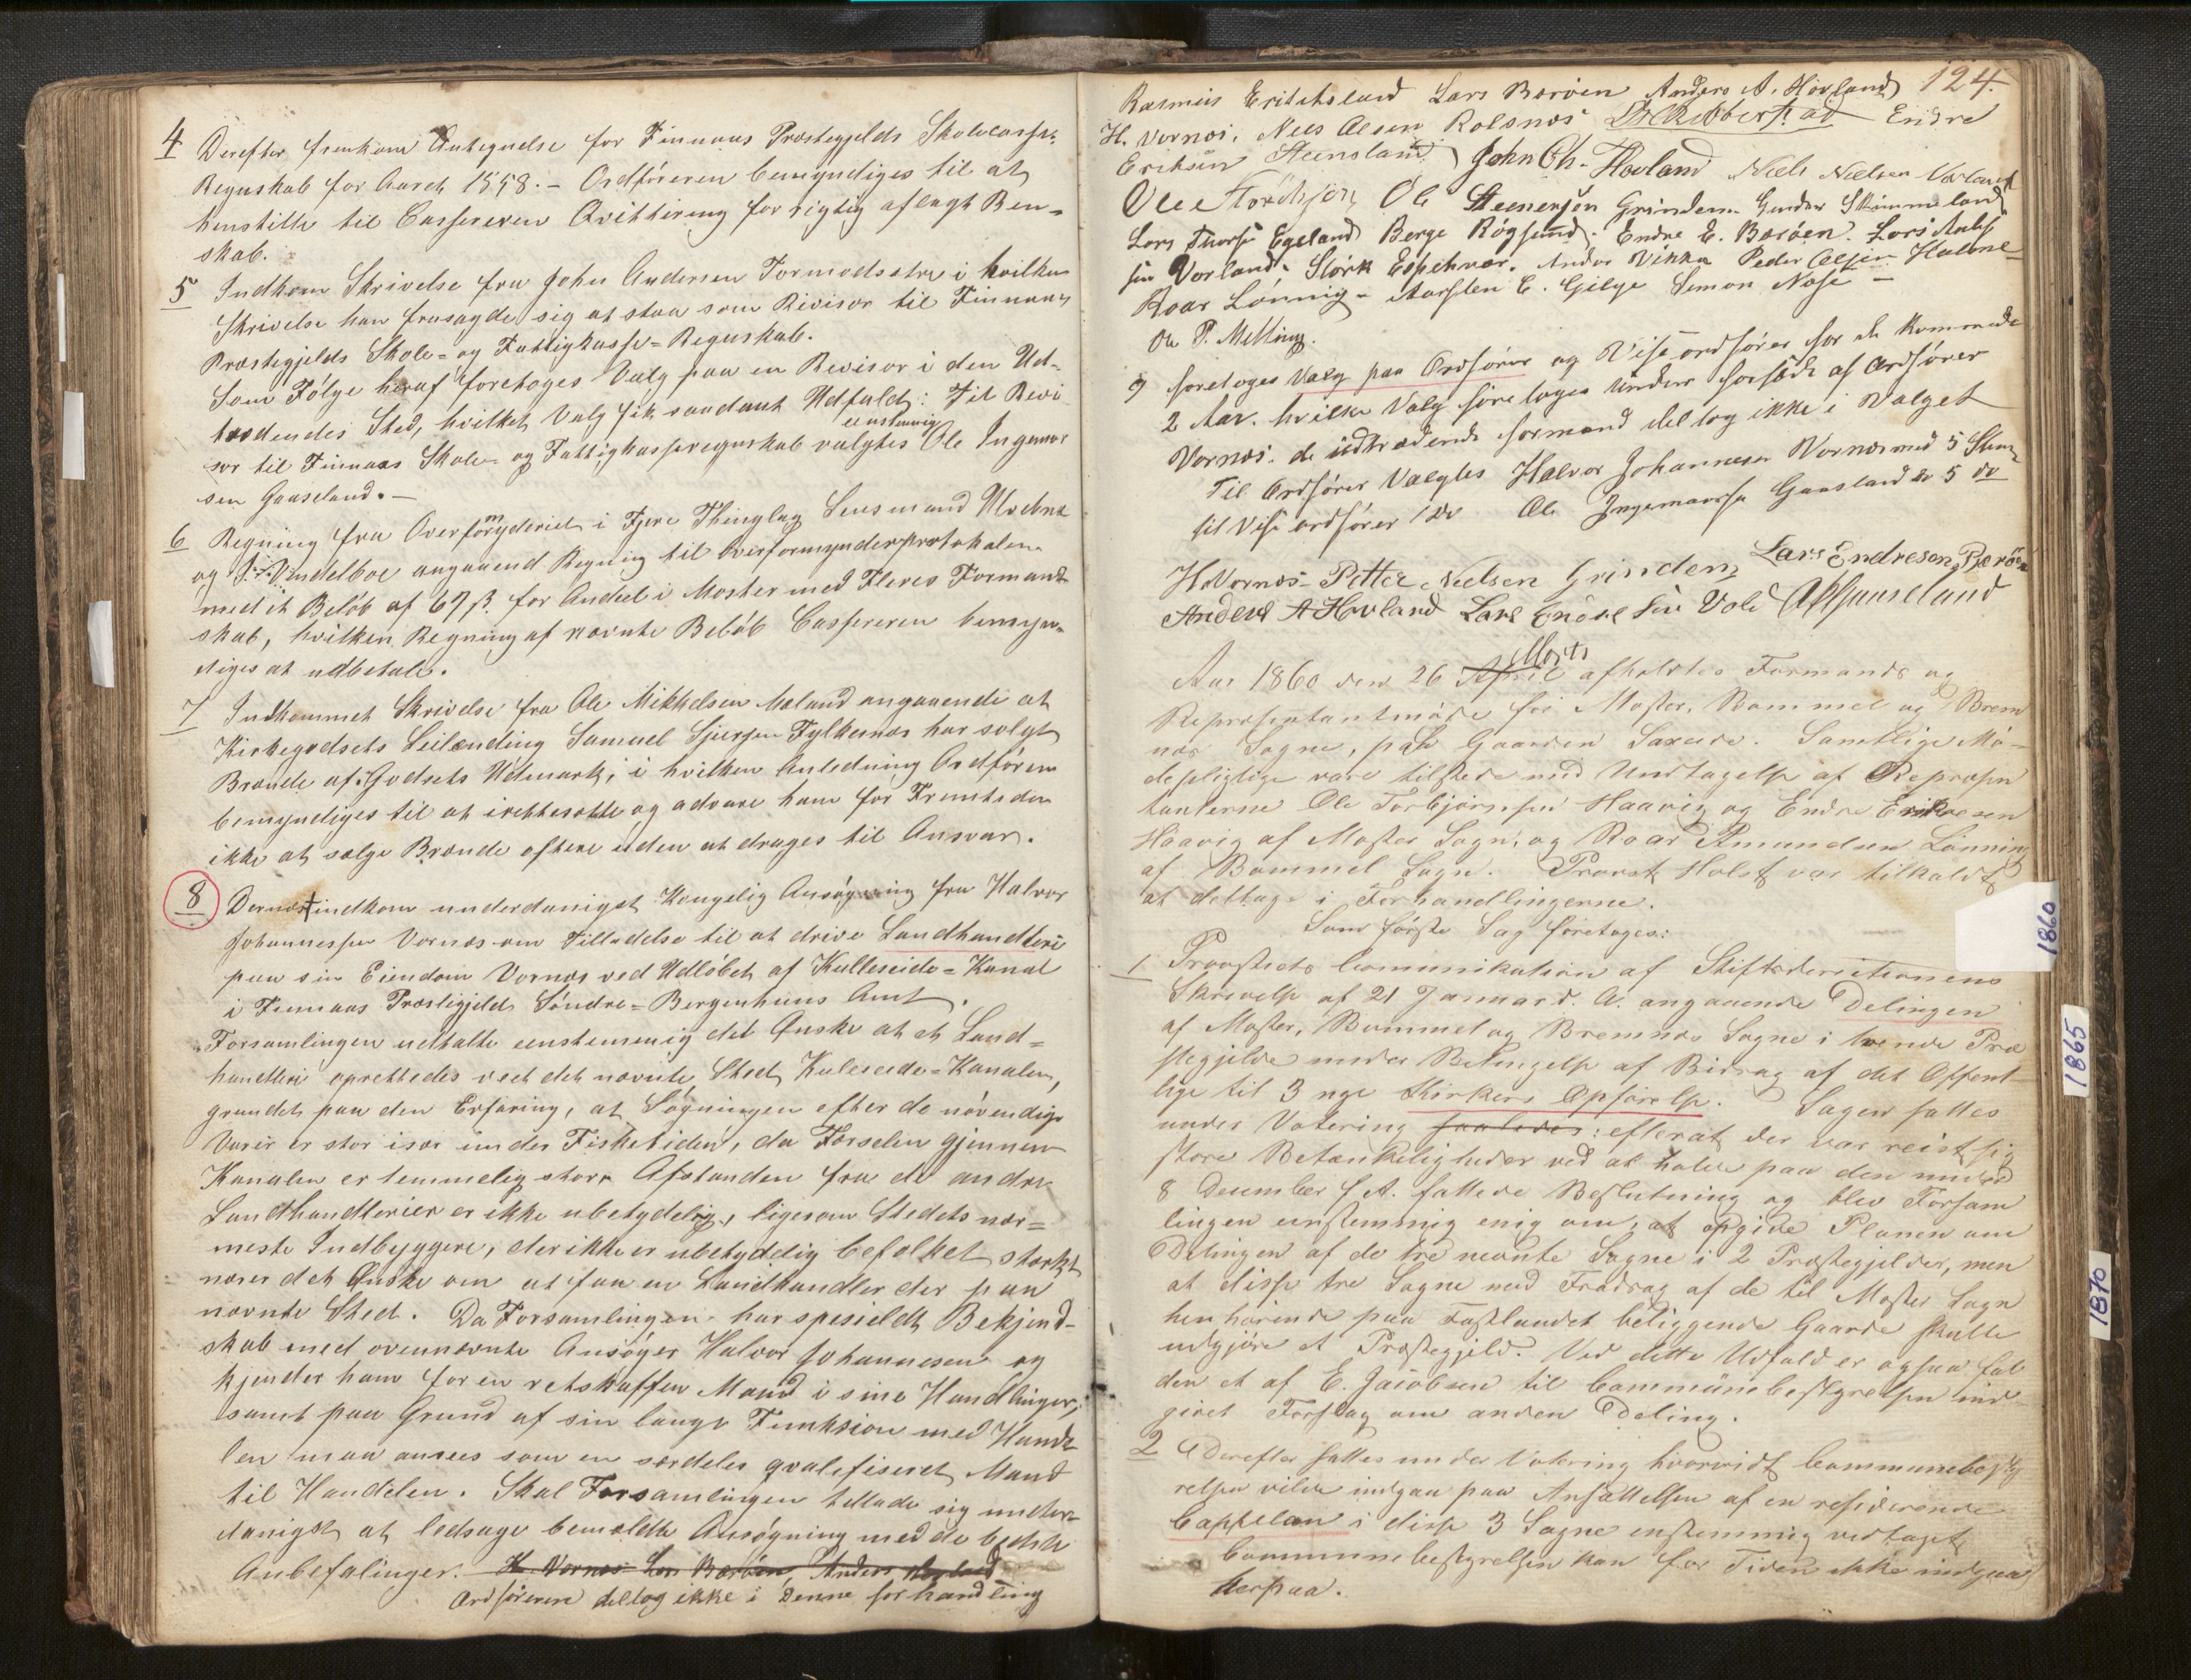 4 Derefter fremkom Antegnelse for Finnaas Præstegjelds Skolecasse-
Regnskab for Aaret 1858. – Ordføreren bemyndiges til at
henstille til Cassereren Qvittering for rigtig aflagt Ren-
skab.
5 Indkom Skrivelse fra John Andersen Tormodsætre i hvilken
Skrivelse han frasagde sig at staa som Revisor til Finnaas
Præstegjelds Skole- og Fattigkasse-Regnskab.
Som Følge heraf foretoges Valg paa en Revisor i den Ud-
trædendes Sted, hvilket Valg fik saadant Udfald: Til Revi
eenstemig
sor til Finnaas Skole- og Fattigkasseregnskab valgtes Ole Ingemor
sen Gaaseland. –
6 Regning fra Overformynderiet i Fjere Thinglag Lensmand
og Vindelboe angaaend Regning til Overformynderprotokolen
med it Beløb af 67 ß. for Andeel i Moster med Fleres Formand-
skab, hvilken Regning af nævnte Beløb Cassereren bemyn-
diges at udbetale.
7 Indkommet Skrivelse fra Ole Mikkelsen Mæland angaaende at
Kirkegodsets Leilænding Samuel Sjursen Fylkesnæs har solgt
Brænde af Godsets Udmark, i hvilken Anledning Ordføren
bemyndiges til at irettesætte og advare ham for Fremtiden
ikke at sælge Brænde oftere uden at drages til Ansvar.
8 Dernæst indkom underdanigst Kongelig Ansøgning fra Halvor
Johannessen Vornæs om Tilladelse til at drive Landhandleri
paa sin Eiendom Vornæs ved Udløbet af Kulleseide-Kanal
i Finnaas Præstegjeld Søndre-Bergenhuus Amt.
Forsamlingen udtalte eenstemmig det Ønske at et Land-
handleri oprettedes ved det nævnte Sted, Kuleseide-Kanalen,
grundet paa den Erfaring, at Søgningen efter de nøvendige
Varer er stor især under Fisketiden, da Færselen gjennem
Kanalen er temmelig stor. Afstanden fra de andre
Landhandlerier er ikke ubetydelig, ligesom Stedets nær-
meste Indbyggere, der ikke er ubetydelig befolket stærkt
nærer det Ønske om at faa en Landhandler der paa
nævnte Sted. Da Forsamlingen har spesieldt Bekjend-
skab med ovennævnte Ansøger Halvor Johannesen og
kjender ham for en retskaffen Mand i sine Handlinger,
samt paa Grund af sin lange Funksion med Hande-
len maa ansees som en særdeles qvalefiseret Mand
til Handelen. Skal Forsamlingen tillade sig under-
danigst at ledsage bemældte Ansøgning med de bedste
Anbefalinger. H. Vornæs Lars Børøen, Anders Hovland
Ordføreren deltog ikke i denne forhandling
124.
Rasmus Eritsland Lars Børøen Anders A. Hovland
H. Vornæs. Nels Olsen Rolsnæs Endre
Eriksen Steensland John Ch. Hovland Niels Nielsen Vorland
Ole Størchsen Ole Steenersøn Grindem Gunder Skimmeland
Lars Thorse Egeland Berge Røgsund. Endre E. Børøen. Lars
sen Vorland. Størk Espehvær. Andas Vikka Peder Olsen
Roar Lønning – Torsten E. Gilje Simon Nose –
Ole P. Melling.
9 foretoges Valg paa Ordfører og Vise ordfører for de kommende
2 Aar. hvilke Valg foretoges under forsæde af Ordfører
Vornæs. de udtrædende formænd deltog ikke i Valget
Til Ordfører Valgtes Halvor Johannesen Vornæs med 5 Stem
til Vise ordfører do Ole Ingemorse Gaasland do 5 do
H. Vornæs Petter Nielsen Grinden Lars Endresen Børøen
Anders A Hovland Lars Endre sen Vold
Morts
Aar 1860 den 26 April afholdtes Formands og
Repræsentantmøde for Moster, Bømmel og Brem
næs Sogne, paa Gaarden Saxeide. Samtlige Mø-
depligtige vare tilstede med Undtagelse af Repræsen
tanterne Ole Torbjørnsen Haavig og Endre Eriksen
Haavig af Moster Sogn, og Roar Amundsen Lønning
af Bømmel Sogn. Provst Holst var tilkaldt
at deltage i Forhandlingerne.
Som første Sag foretoges:
1 Provstiets Communikation af Stiftsdirektionens
Skrivelse af 21 Januar d. A. angaaende Delingen
af Moster, Bømmel og Bremnæs Sogne i tvende Præ
stegjelde under Betingelse af Bidrag af det Offent-
lige til 3 nye Kirkers Opførelse. Sagen sattes
under Votering saaledes: efterat der var reist sig
store Betænkeligheder ved at holde paa den under
8 Desember f. A. fattede Beslutning og blev Forsam
lingen eenstemmig enig om, at opgive Planen om
Delingen af de tre nævnte Sogne i 2 Præstegjelder, men
at disse tre Sogne med Fradrag af de til Moster Sogn
henhørende paa Fastlandet beliggende Gaarde skulle
udgjøre et Præstegjeld. Ved dette Udfald er ogsaa fal
den et af E. Jacobsen til Communebestyrelsen ind-
givet Forslag om anden Deling.
2 Derefter sattes under Votering hvorvidt Communebesty
relsen vilde indgaa paa Ansættelsen af en residerende
Cappelan i disse 3 Sogne enstemmig vedtaget
Communebestyrelsen kan for Tiden ikke indgaa
herpaa.
1860
1865
1870